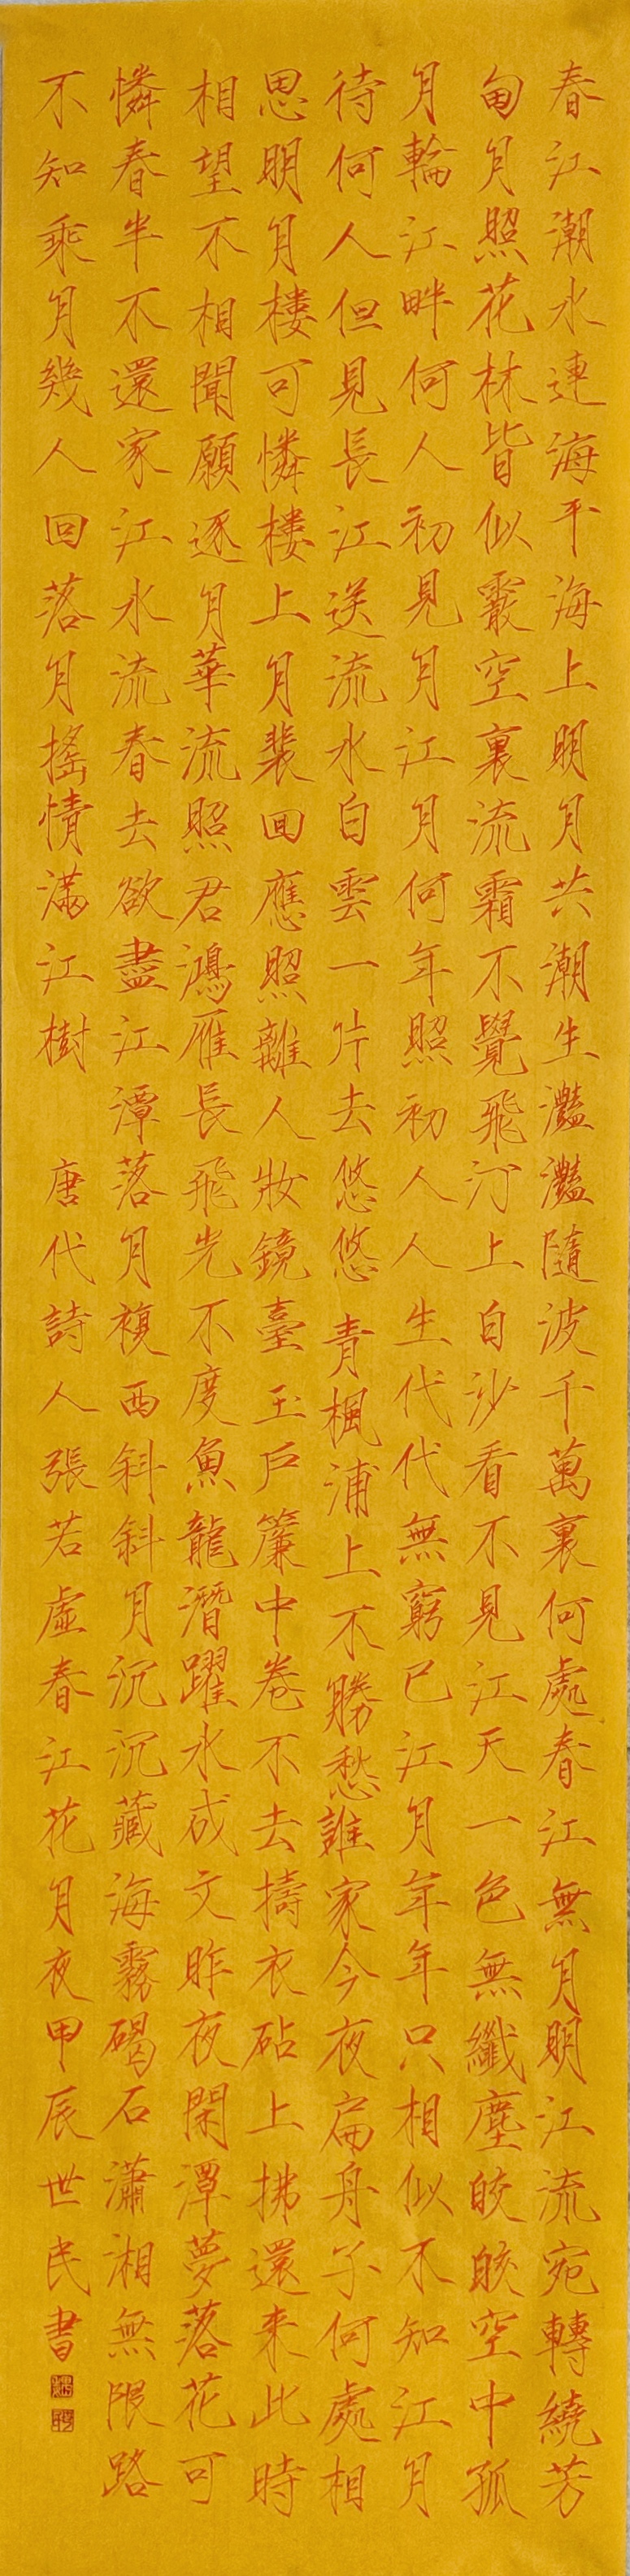 春江潮水連海平海上明月共潮生灩灩隨波千萬裏何處春江無月明江流宛轉繞芳
甸月照花林皆似霰空裏流霜不覺飛汀上白沙看不見江天一色無纖塵皎皎空中孤
月輪江畔何人初見月江月何年照初人人生代代無窮已江月年年只相似不知江月
待何人但見長江送流水白雲一片去悠悠青楓浦上不勝愁誰家今夜扁舟子何處相
思明月樓可憐樓上月裴回應照離人妝鏡臺玉戶簾中卷不去擣衣砧上拂還来此時
相望不相聞願逐月華流照君鴻雁長飛光不度魚龍潛躍水成文昨夜閑潭夢落花可
憐春半不還家江水流春去欲盡江潭落月複西斜斜月沉沉藏海霧碣石瀟湘無限路
不知乘月幾人回落月搖情滿江樹 唐代詩人張若虛春江花月夜甲辰世民書